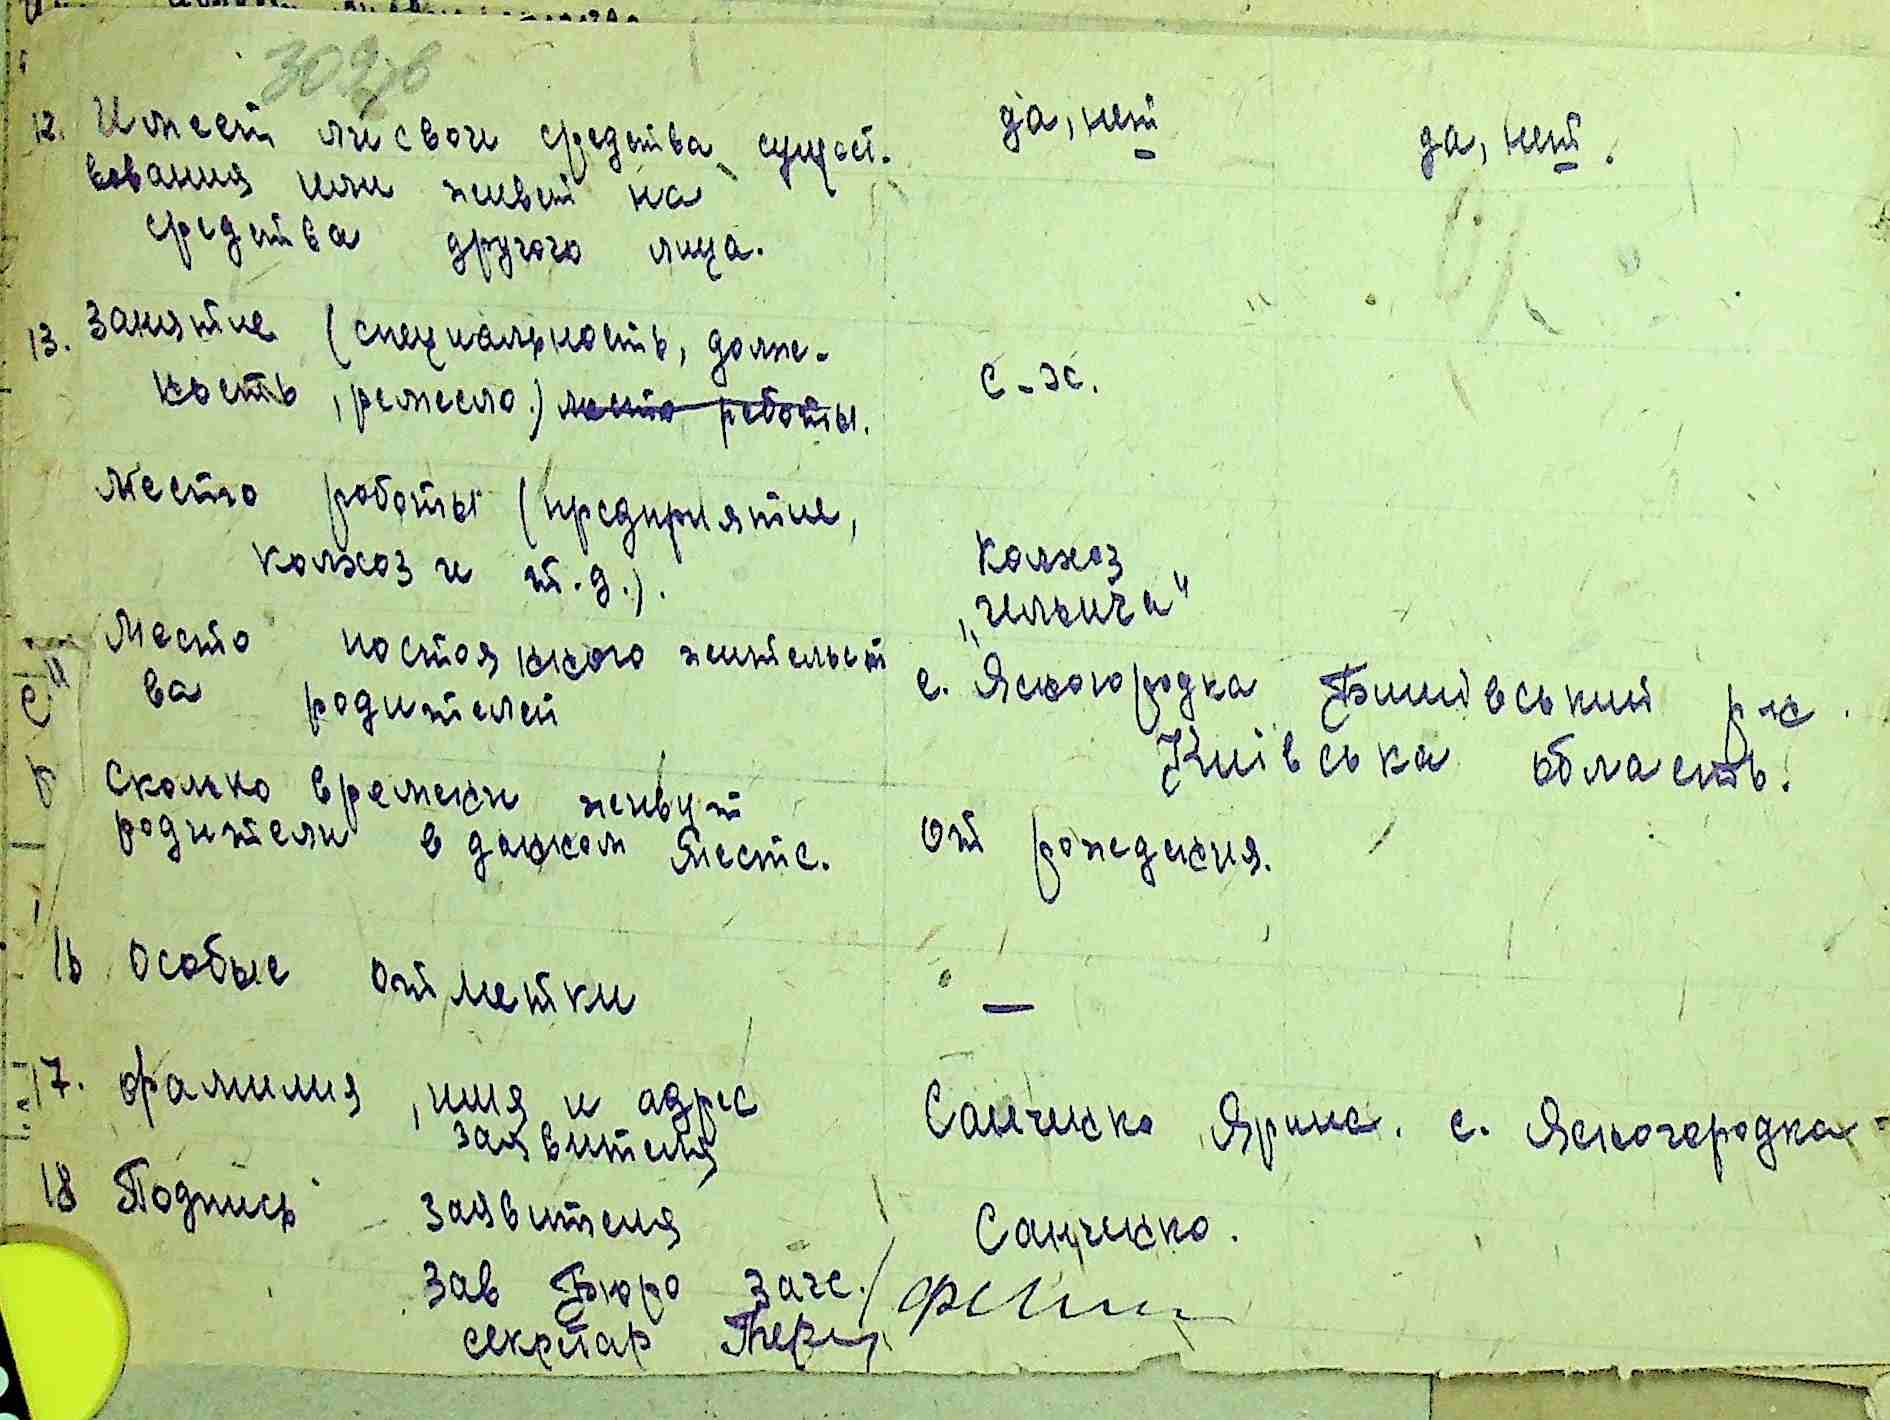 309 зв
12. Имеет ли свои средства сущест- да, нет да, нет.
вования или живет на
средства другого лица.
13. Занятие (специальность, долж-
ность, ремесло.) место работы. с-х.
Место работы (предприятие,
колхоз и т.д.). Колхоз
„Ильича"
Место постоянного жительст
ва родителей с. Ясногородка Бишівський р-н.
Київська область.
Сколько времени живут
родители в данном месте. от рождения.
16 Особые отметки —
17. Фамилия, имя и адрес Санченко Ярина. с. Ясногородка
заявителя
18 Подпись заявителя Санченко.
Зав Бюро загс.
секретар